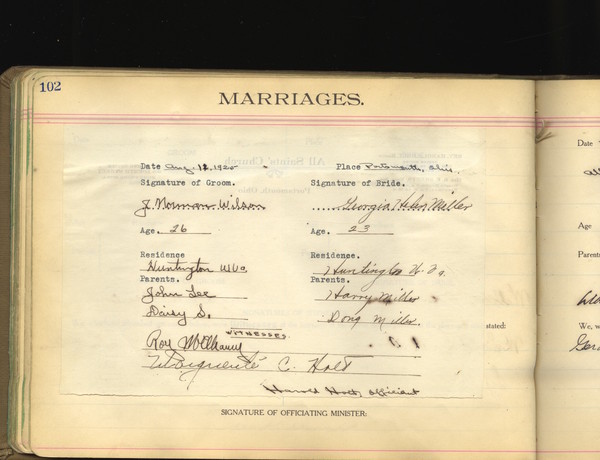 102
MARRIAGES.
All Saints' Church
Portsmouth, Ohio.
Date Aug. 12, 1920 Place Portsmouth, Ohio.
Signature of Groom. Signature of Bride.
J. Norman Wilson Georgia Helen Miller
Age. 26 Age. 23
Residence Residence.
Huntington W Va. Huntington W. Va.
Parents. Parents.
John Lee Harry Miller
Daisy S. Miller.
WITNESSES
Roy
Marguerite C. Holt
Harold Holt, officient
SIGNATURE OF OFFICIATING MINISTER:
Date
Age
Parent
stated:
We, w